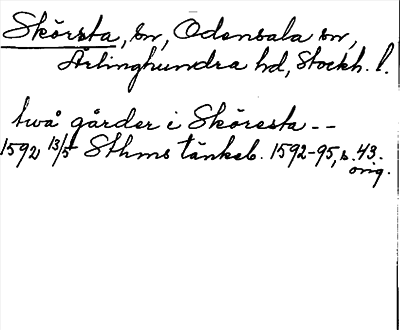 Skörsta, sn, Odensala sn,
Ärlinghundra hd, Stockh. l.
två gårder i Sköresta --
1592 13/5 Sthms tänkeb. 1592-95, s. 43.
orig.